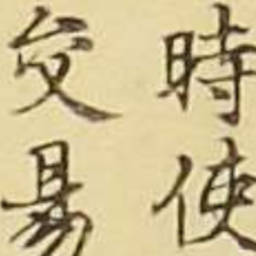 時使
交易